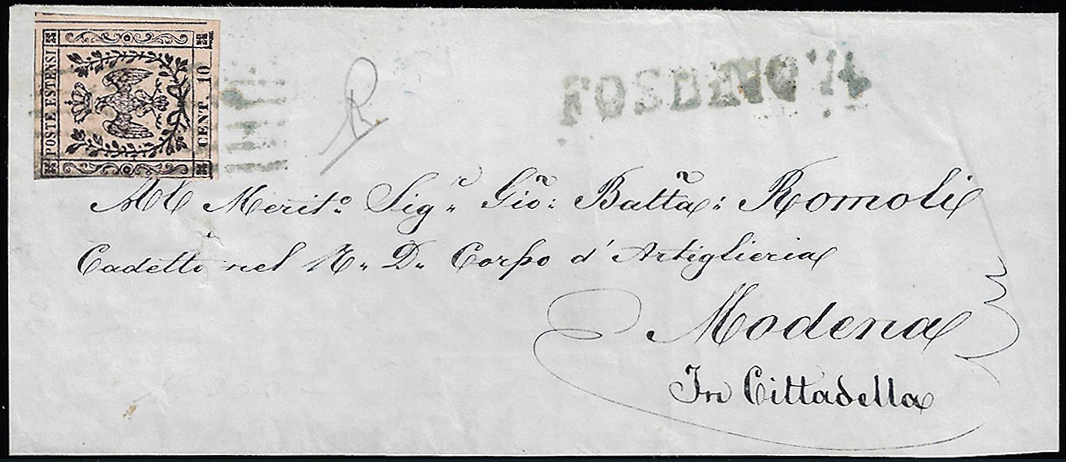 POSTE ESTENSI
CENT. 10
R.
FOSDINOVO
All Merit.o Sig.r Gio: Batta: Romoli
Cadetto nel R. D. Corpo d'Artiglieria
Modena
In Cittadella